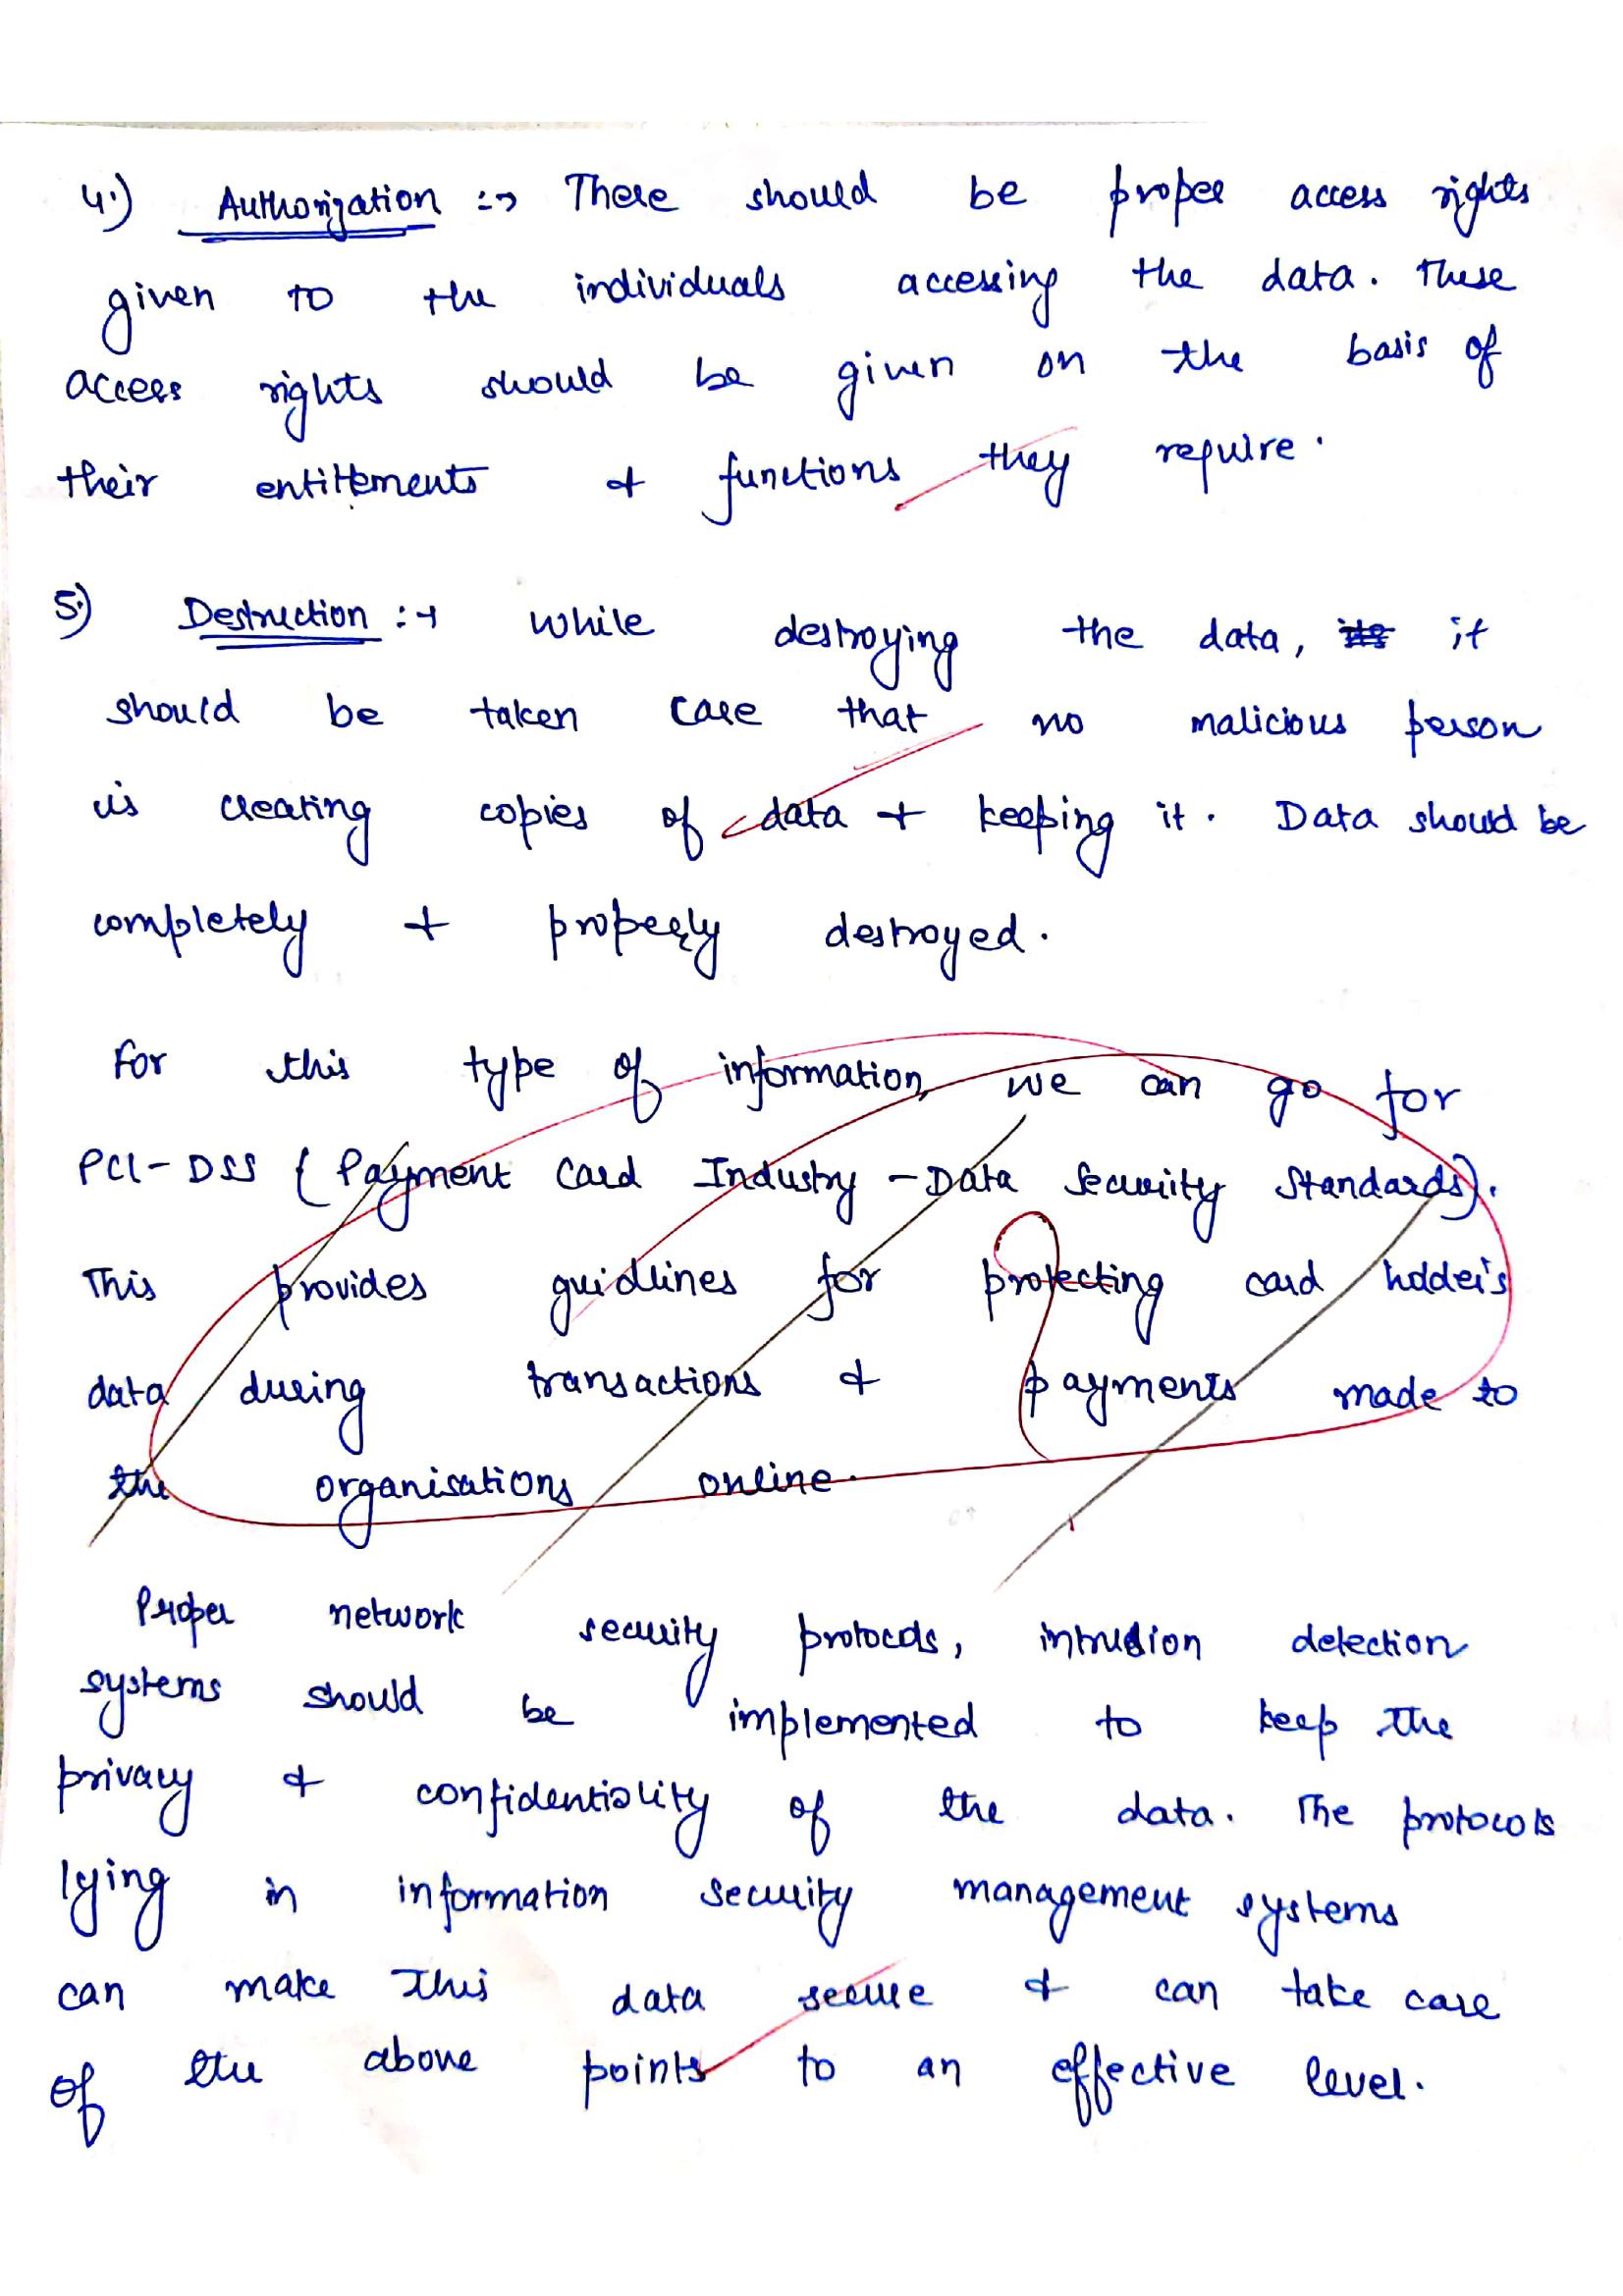 4.) Authorization :→ There should be proper access rights
given to the individuals accessing the data. These
access rights should be given on the basis of
their entitlements & functions they require.
5.) Destruction :→ While destroying the data, it
should be taken care that no malicious person
is creating copies of data & keeping it. Data should be
completely & properly destroyed.
For this type of information, we can go for
PCI-DSS (Payment Card Industry - Data Security Standards).
This provides guidlines for protecting card holder's
data during transactions & payments made to
the organisations online.
Proper network security protocols, intrusion detection
systems should be implemented to keep the
privacy & confidentiality of the data. The protocols
lying in information security management systems
can make this data secure & can take care
of the above points to an effective level.